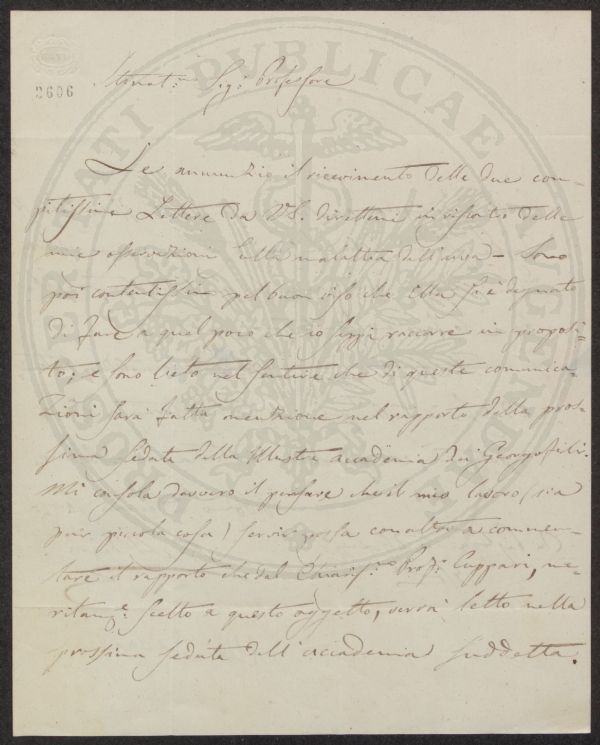 2606
Stimat.mo Sig.r Professore
Le annunzio il ricevimento delle due com-
pitissime Lettere da V.S. direttemi in risposta delle
mie osservazioni sulla malattia dell'uva – Sono
poi contentissimo pel buon viso che Ella si è degnato
di fare a quel poco che io seppi raccorre in proposi-
to; e sono lieto nel sentire che di queste comunica-
zioni sarà fatta menzione nel rapporto della pros-
sima seduta della Illustre accademia dei Georgofili.
Mi consola davvero il pensare che il mio lavoro (sia
pur piccola cosa) servir possa con altri a commen-
tare il rapporto che dal Chiariss.mo Prof.r Cuppari, me-
ritam.e scelto a questo oggetto, verrà letto nella
prossima seduta dell'accademia suddetta.